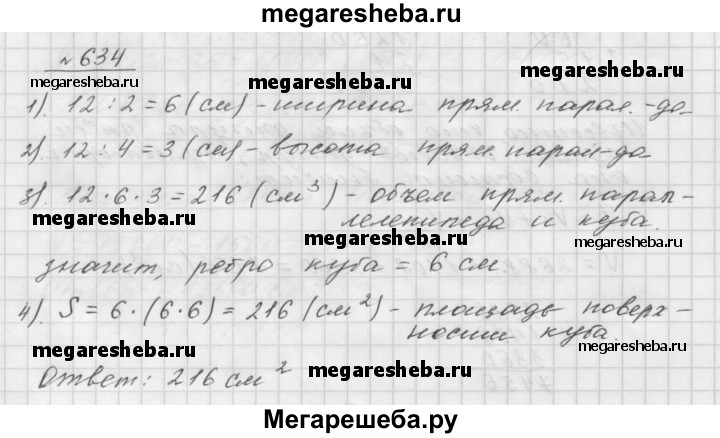 megaresheba.ru
№ 634
megaresheba.ru megaresheba.ru megaresheba.ru
1). 12 : 2 = 6 (см) - ширина прям. парал. -да
2). 12 : 4 = 3 (см) - высота прям. парал-да
megaresheba.ru megaresheba.ru
3). 12 · 6 · 3 = 216 (см³) - объем прям. парал-
лелепипеда и куба.
megaresheba.ru megaresheba.ru megaresheba.ru
значит, ребро куба = 6 см.
4). S = 6 · (6·6) = 216 (см²) - площадь поверх-
ности куба.
megaresheba.ru megaresheba.ru megaresheba.ru
Ответ: 216 см²
Мегарешеба.ру